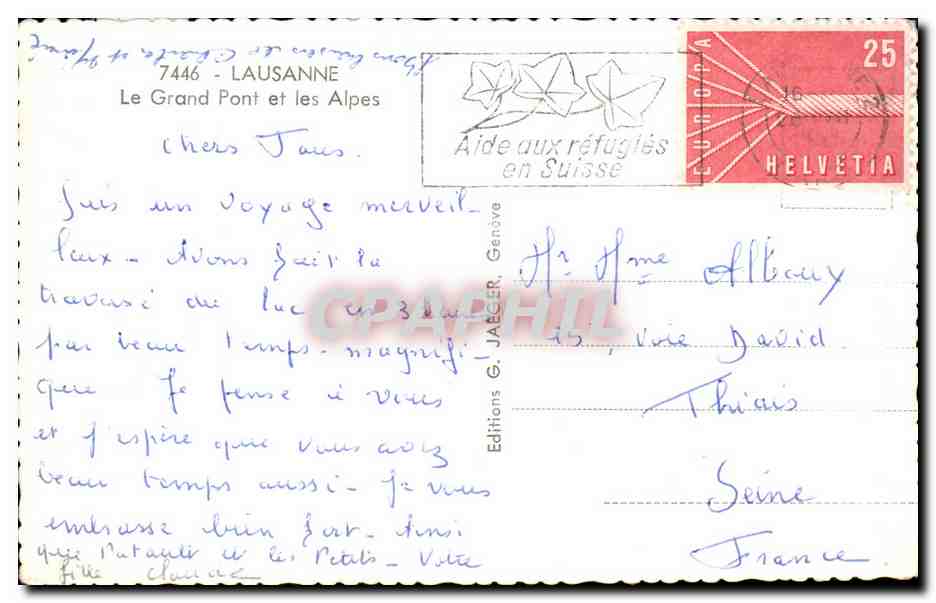 Bons baisers de Claude et
7446 - LAUSANNE
Le Grand Pont et les Alpes
Chers Tous.
Suis un voyage merveil-
leux - Avons fait la
traversé du lac en 3 heures
par beau temps - magnifi-
que Je pense à vous
et j'espère que vous avez
beau temps aussi - Je vous
embrasse bien fort - Ainsi
que et les Petits - Votre
fille Claude
Editions G. JAEGER, Genève
Aide aux réfugiés
en Suisse
EUROPA
25
HELVETIA
Mr Mme
15, Voie David
Thiais
Seine
France
CPAPHIL